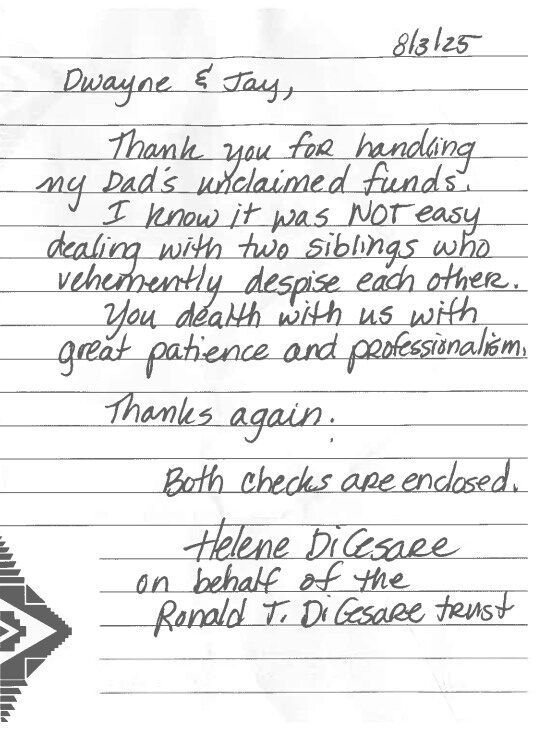 8/3/25
Dwayne & Jay,
Thank you for handling
my Dad's unclaimed funds.
I know it was NOT easy
dealing with two siblings who
vehemently despise each other.
You dealth with us with
great patience and professionalism.
Thanks again.
Both checks are enclosed.
Helene DiCesare
on behalf of the
Ronald T. DiCesare trust